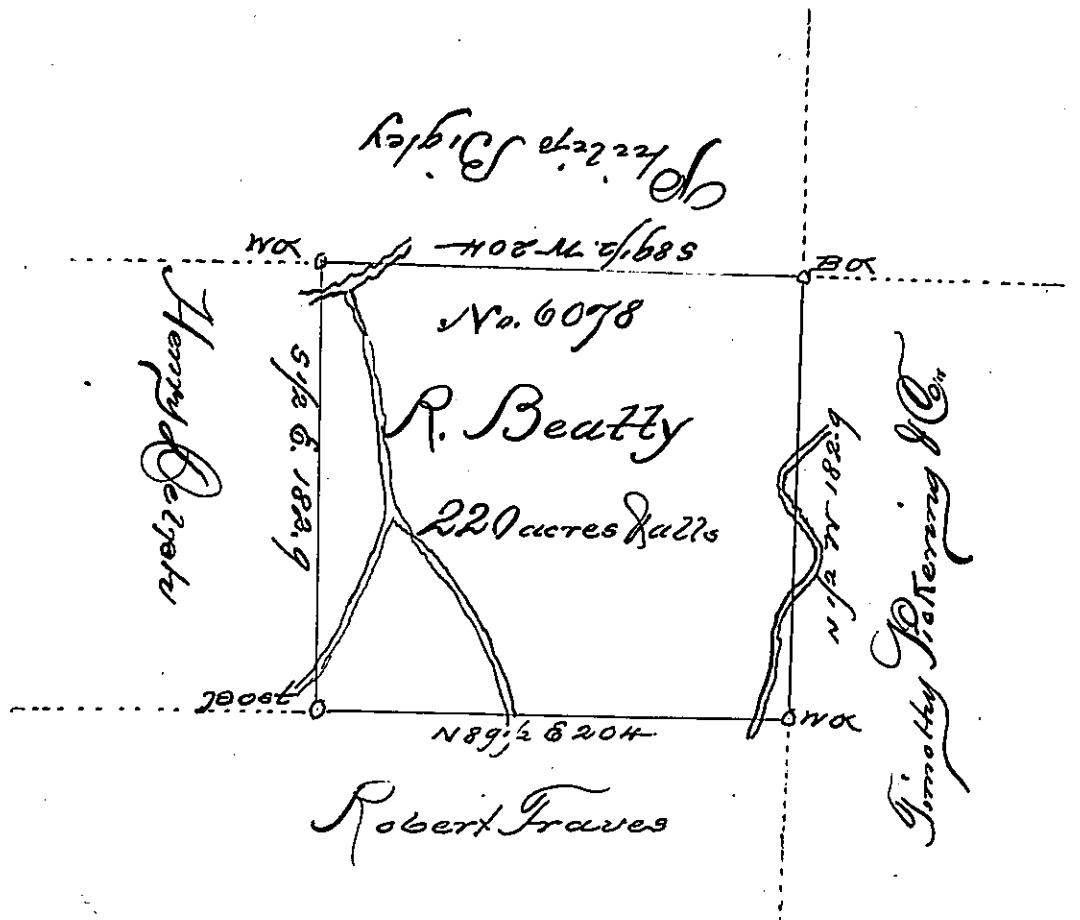 Philip Bigley
S 89 1/2 W 204
WO
BO
No. 6078
R. Beatty
220 acres & alls
Henry
S 1/2 E. 182.9
N 1/2 W 182.9
Timothy Pickering & Co
Post
WO
N 89 1/2 E 204
Robert Traves